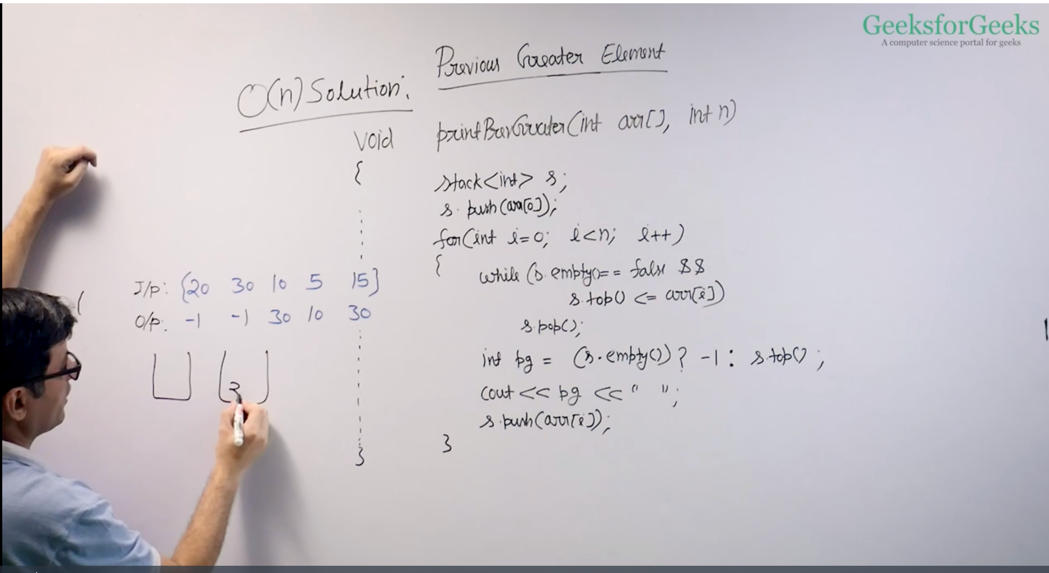 GeeksforGeeks
A computer science portal for geeks
Previous Greater Element
O(n) Solution:
void printPrevGreater(int arr[], int n)
{
stack<int> s;
s.push(arr[0]);
for(int i=0; i<n; i++)
{
while (s.empty()== false &&
s.top() <= arr[i])
s.pop();
int pg = (s.empty()) ? -1 : s.top();
cout << pg << " ";
s.push(arr[i]);
}
}
I/p: {20 30 10 5 15}
O/p: -1 -1 30 10 30
3